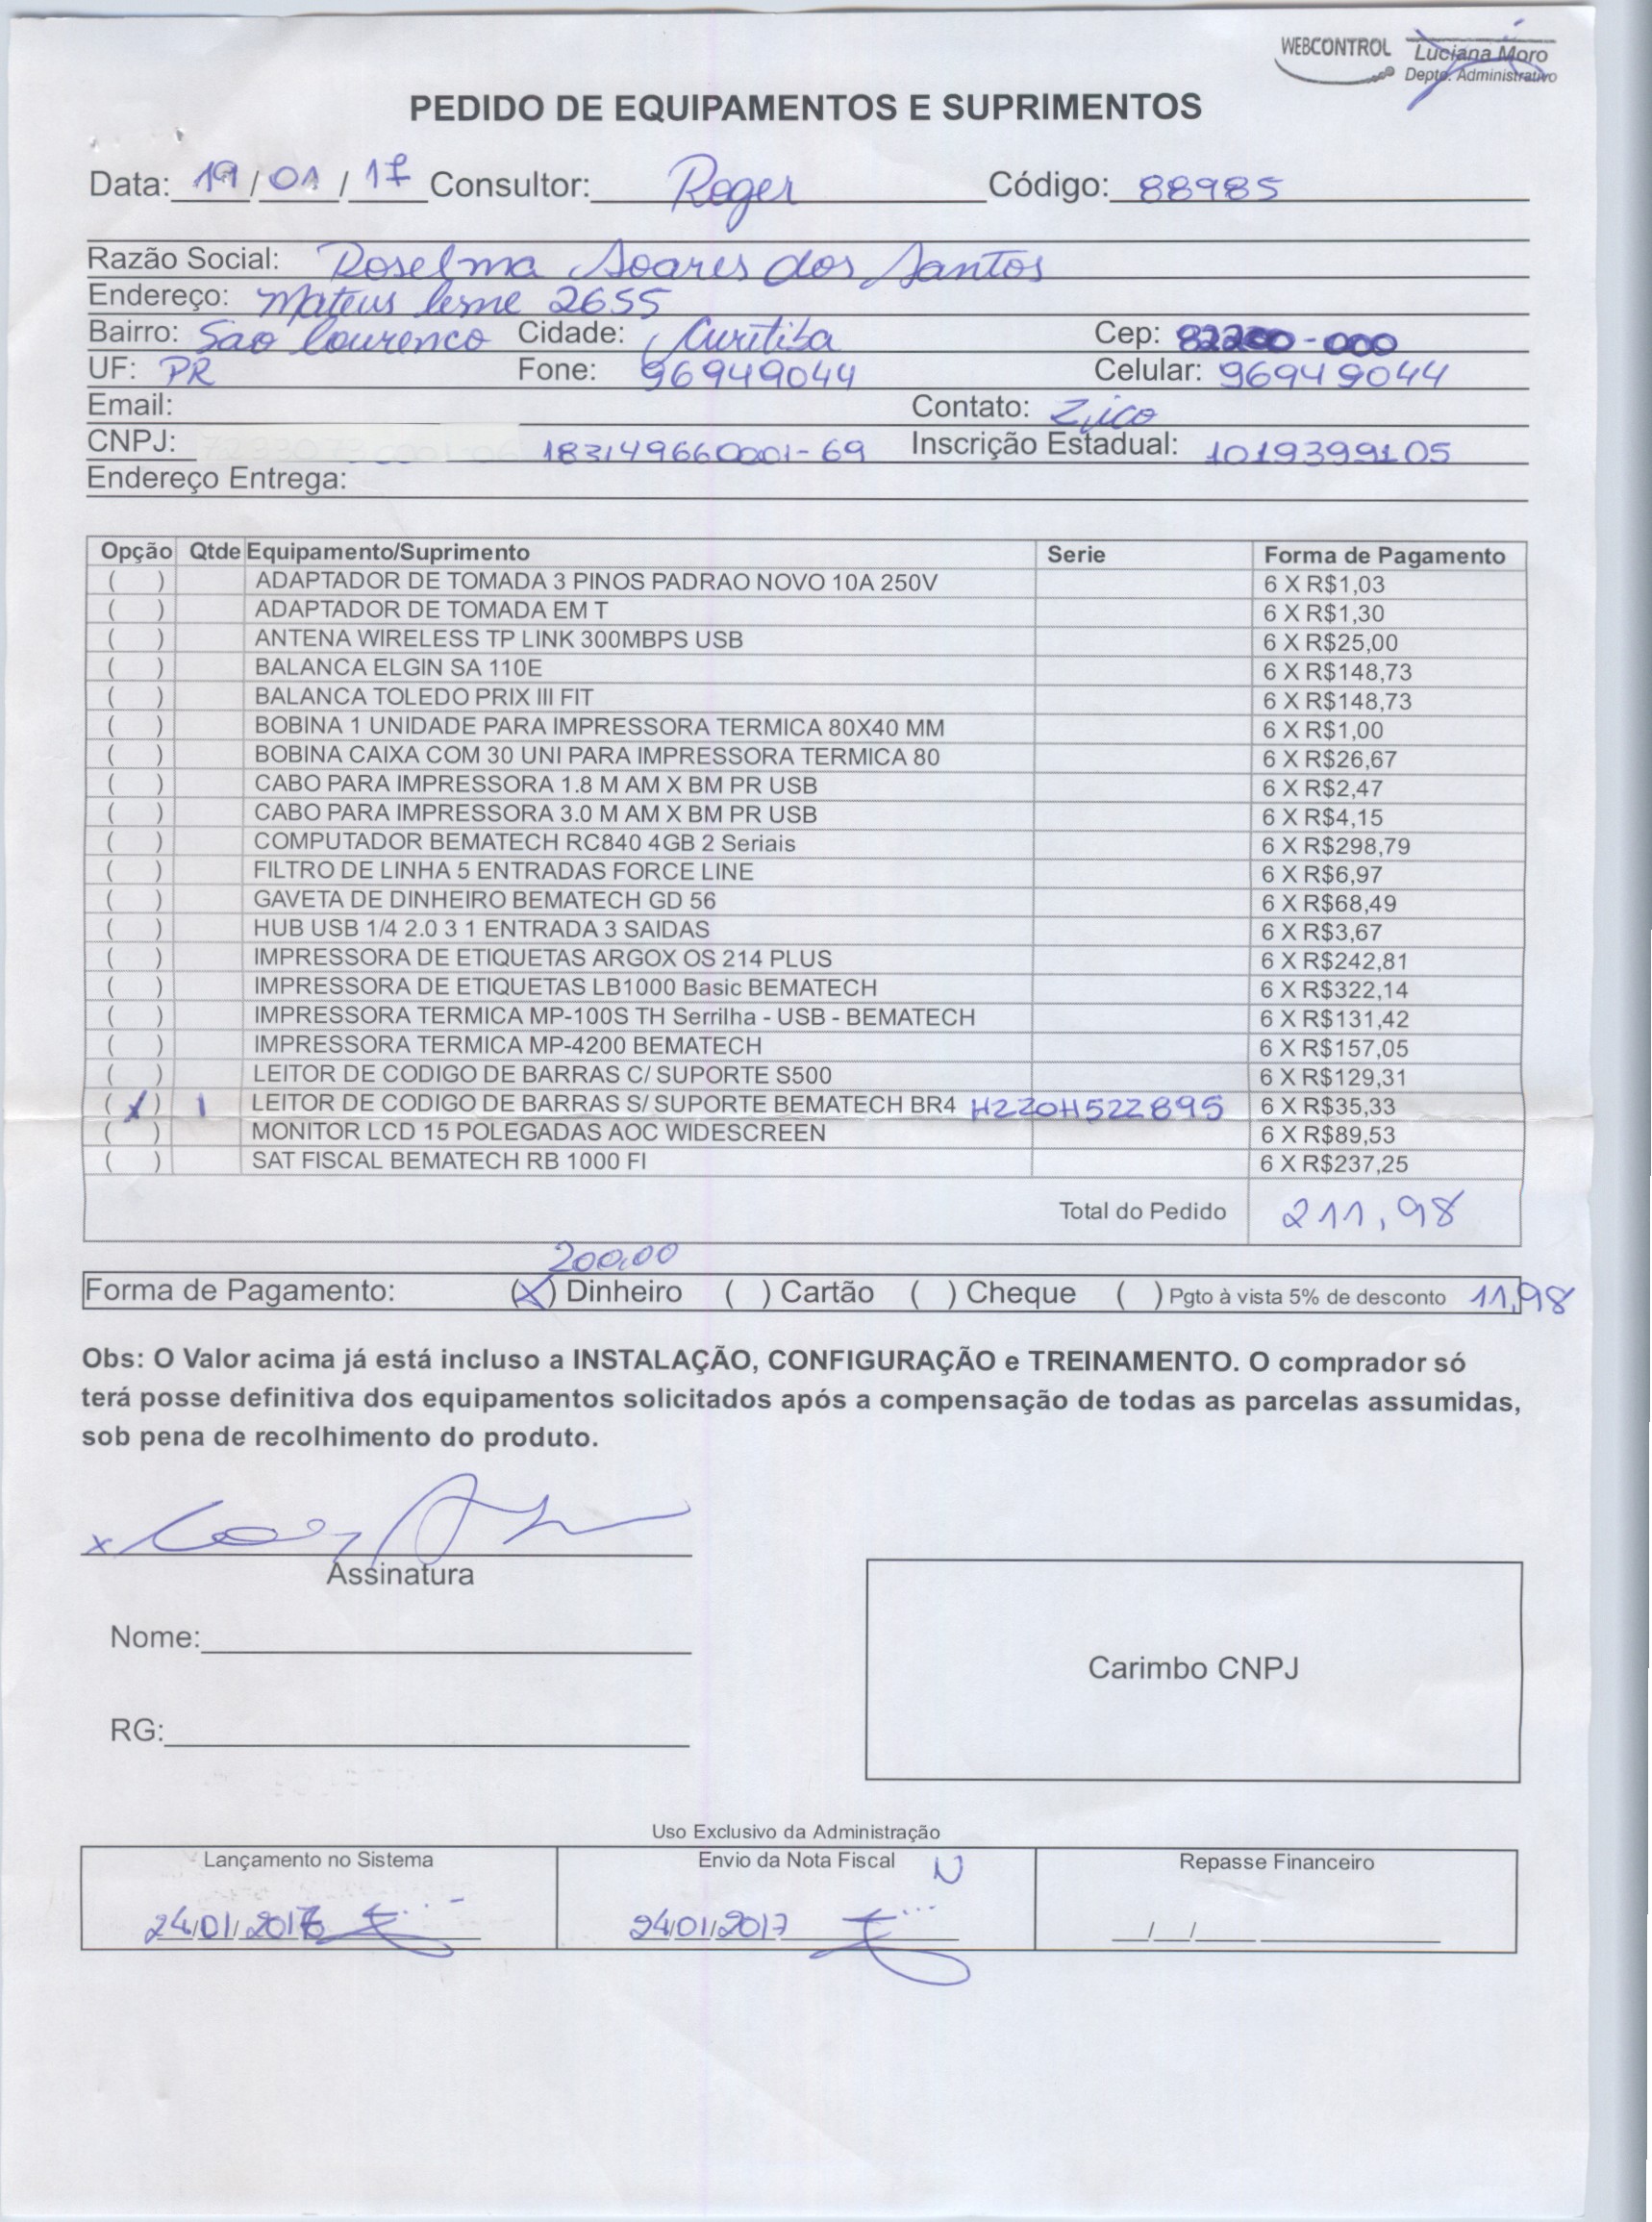 WEBCONTROL Luciana Moro
Depto. Administrativo
PEDIDO DE EQUIPAMENTOS E SUPRIMENTOS
Data: 19/01/17 Consultor: Roger Código: 88985
Razão Social: Roselma Soares dos Santos
Endereço: Mateus leme 2655
Bairro: Sao Lourenco Cidade: Curitiba Cep: 82200-000
UF: PR Fone: 96949044 Celular: 96949044
Email: Contato: Zico
CNPJ: 183149660001-69 Inscrição Estadual: 1019399105
Endereço Entrega:
Opção Qtde Equipamento/Suprimento Serie Forma de Pagamento
( ) ADAPTADOR DE TOMADA 3 PINOS PADRAO NOVO 10A 250V 6 X R$1,03
( ) ADAPTADOR DE TOMADA EM T 6 X R$1,30
( ) ANTENA WIRELESS TP LINK 300MBPS USB 6 X R$25,00
( ) BALANCA ELGIN SA 110E 6 X R$148,73
( ) BALANCA TOLEDO PRIX III FIT 6 X R$148,73
( ) BOBINA 1 UNIDADE PARA IMPRESSORA TERMICA 80X40 MM 6 X R$1,00
( ) BOBINA CAIXA COM 30 UNI PARA IMPRESSORA TERMICA 80 6 X R$26,67
( ) CABO PARA IMPRESSORA 1.8 M AM X BM PR USB 6 X R$2,47
( ) CABO PARA IMPRESSORA 3.0 M AM X BM PR USB 6 X R$4,15
( ) COMPUTADOR BEMATECH RC840 4GB 2 Seriais 6 X R$298,79
( ) FILTRO DE LINHA 5 ENTRADAS FORCE LINE 6 X R$6,97
( ) GAVETA DE DINHEIRO BEMATECH GD 56 6 X R$68,49
( ) HUB USB 1/4 2.0 3 1 ENTRADA 3 SAIDAS 6 X R$3,67
( ) IMPRESSORA DE ETIQUETAS ARGOX OS 214 PLUS 6 X R$242,81
( ) IMPRESSORA DE ETIQUETAS LB1000 Basic BEMATECH 6 X R$322,14
( ) IMPRESSORA TERMICA MP-100S TH Serrilha - USB - BEMATECH 6 X R$131,42
( ) IMPRESSORA TERMICA MP-4200 BEMATECH 6 X R$157,05
( ) LEITOR DE CODIGO DE BARRAS C/ SUPORTE S500 6 X R$129,31
(X) 1 LEITOR DE CODIGO DE BARRAS S/ SUPORTE BEMATECH BR4 H220H522895 6 X R$35,33
( ) MONITOR LCD 15 POLEGADAS AOC WIDESCREEN 6 X R$89,53
( ) SAT FISCAL BEMATECH RB 1000 FI 6 X R$237,25
Total do Pedido 211,98
200,00
Forma de Pagamento: (X) Dinheiro ( ) Cartão ( ) Cheque ( ) Pgto à vista 5% de desconto 11,98
Obs: O Valor acima já está incluso a INSTALAÇÃO, CONFIGURAÇÃO e TREINAMENTO. O comprador só
terá posse definitiva dos equipamentos solicitados após a compensação de todas as parcelas assumidas,
sob pena de recolhimento do produto.
x
Assinatura
Nome:
RG:
Carimbo CNPJ
Uso Exclusivo da Administração
Lançamento no Sistema Envio da Nota Fiscal N Repasse Financeiro
24/01/2017 24/01/2017 / /